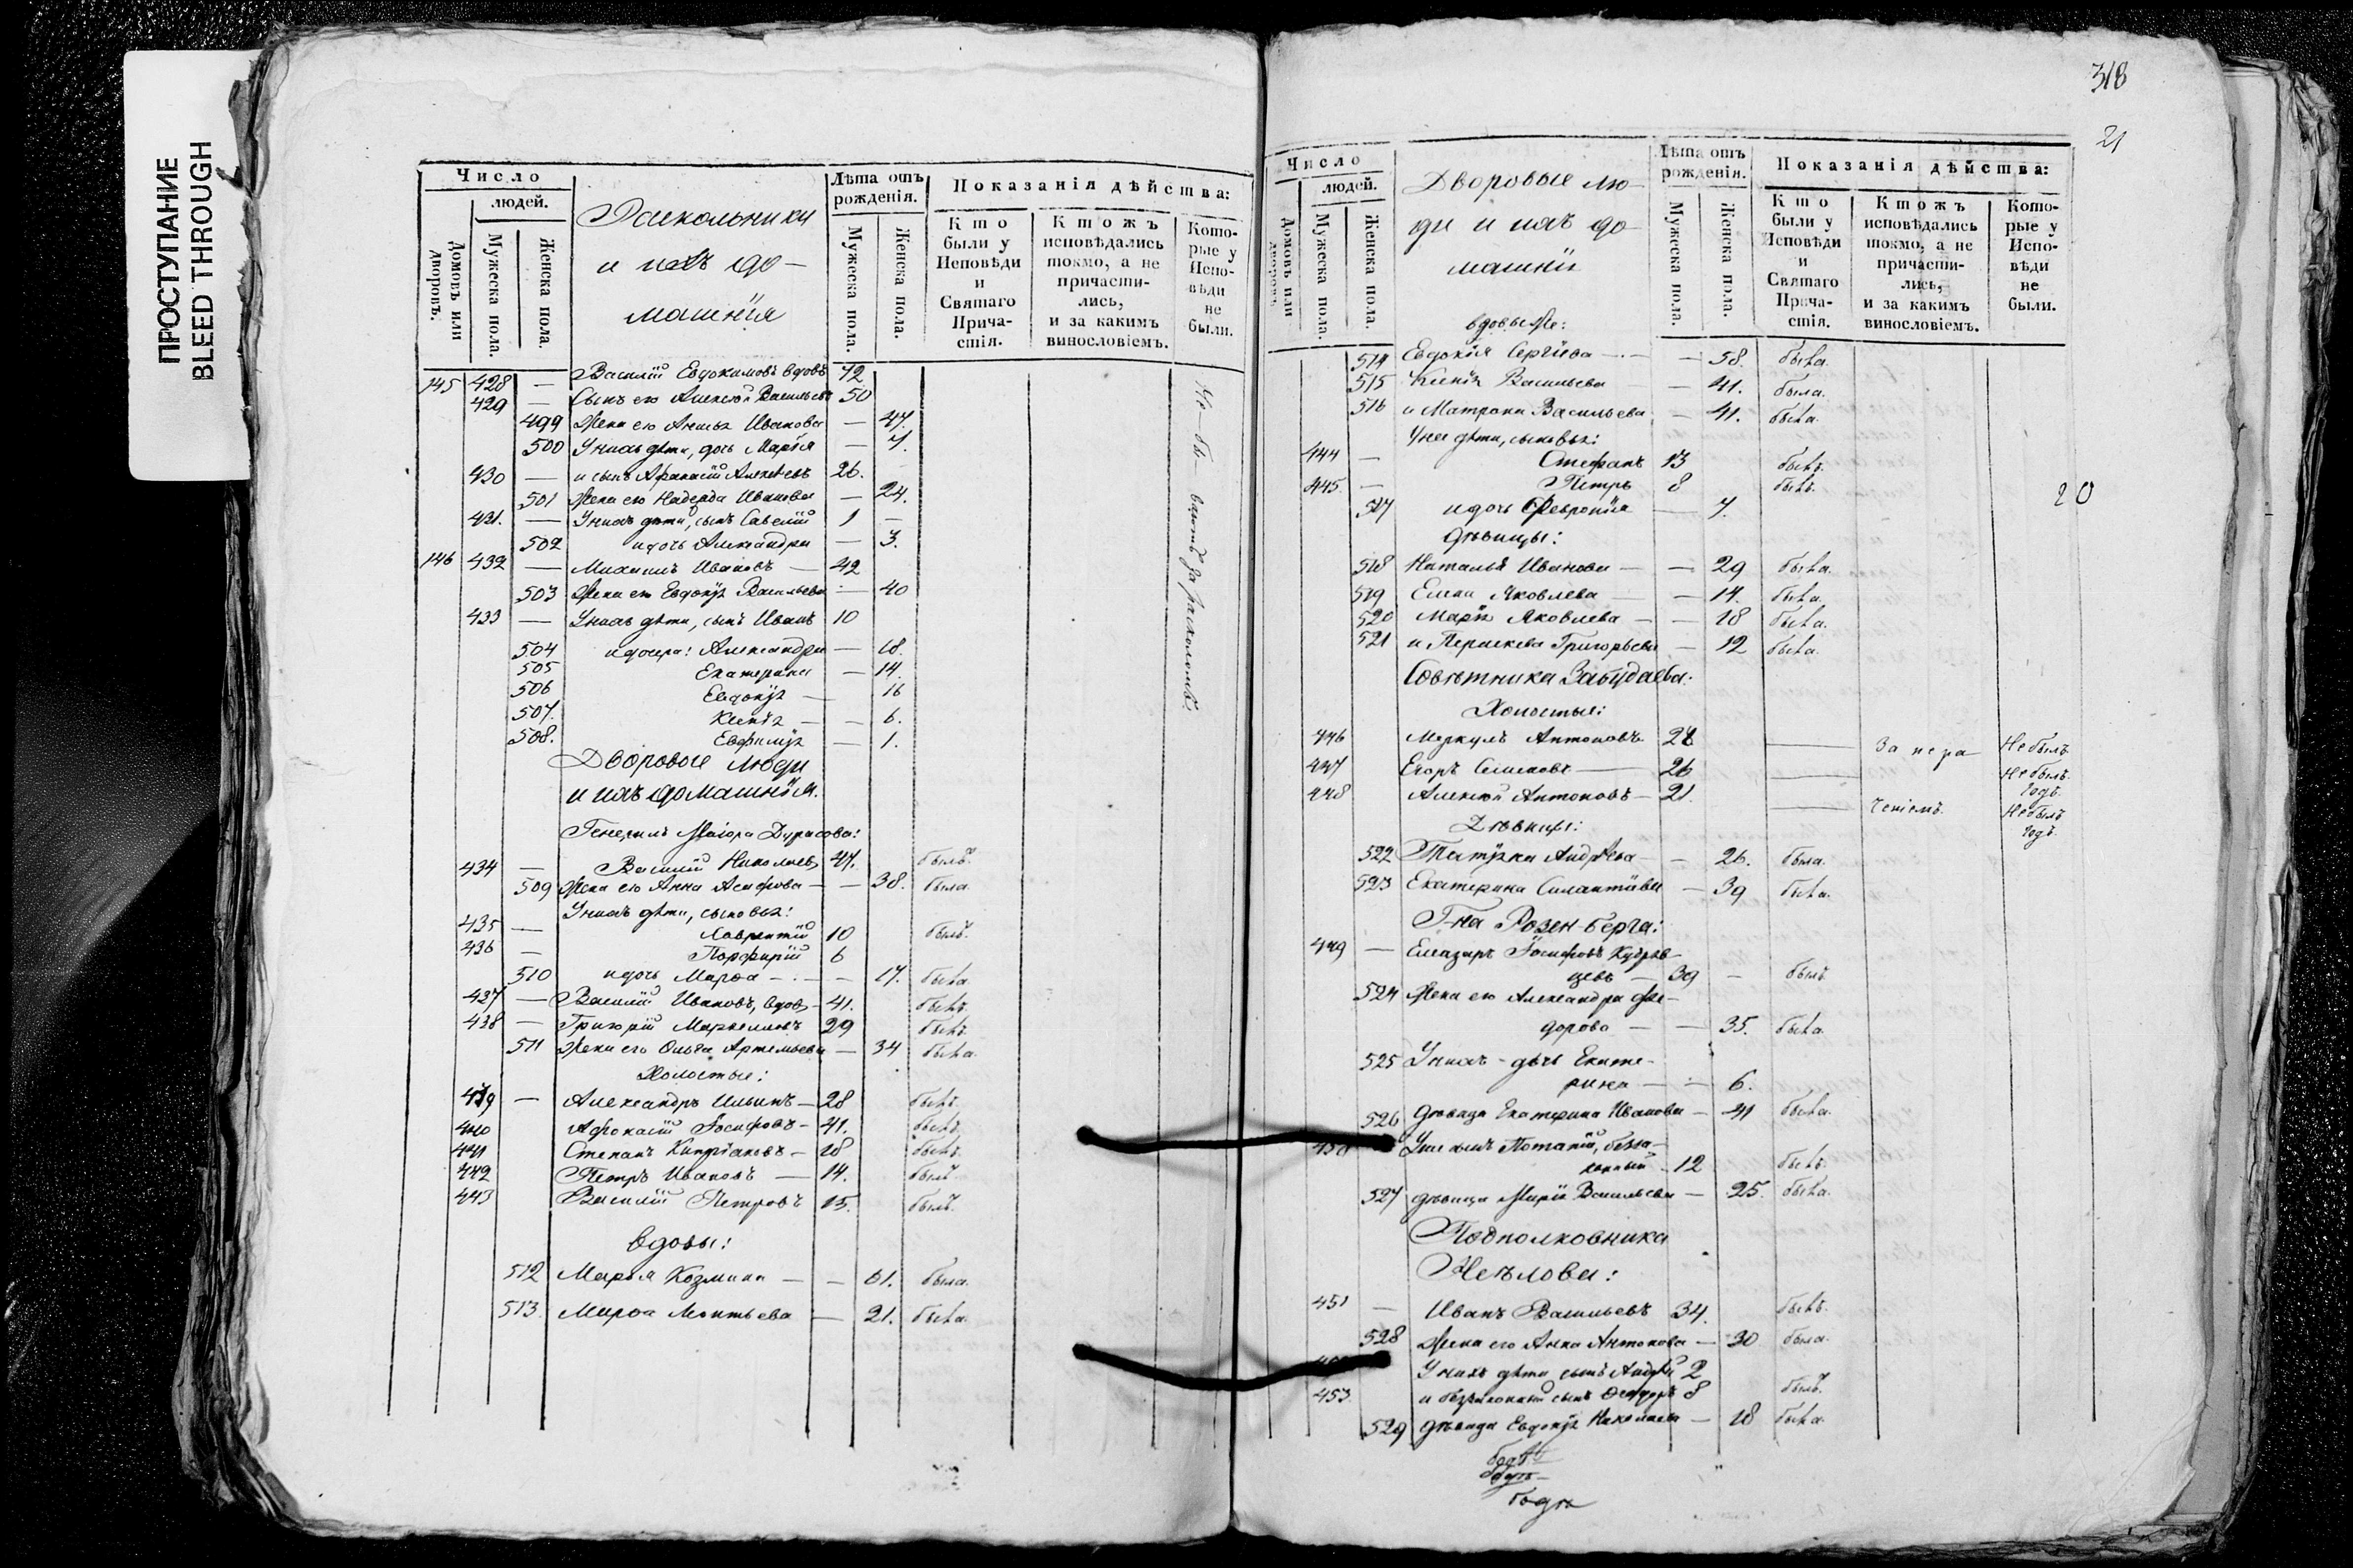 ПРОСТУПАНИЕ
BLEED THROUGH
Число
людей.
Домовъ или дворовъ.
Мужеска пола.
Женска пола.
Раскольники
и ихъ до-
машнія
Лѣта отъ рожденія.
Мужеска пола.
Женска пола.
Показанія дѣйства:
Кто были у Исповѣди и Святаго Прича-стія.
Ктожъ исповѣдались токмо, а не причасти-лись, и за какимъ винословіемъ.
Кото-рые у Испо-вѣди не были.
145 428 — Василій Евдокимовъ вдовъ 72
429 — Сынъ его Алексѣй Васильевъ 50
499 Жена его Анисья Иванова — 47.
500 У нихъ дѣти, дочь Марія — 7.
430 — и сынъ Афанасій Алексѣевъ 26.
501 Жена его Надежда Иванова — 24.
431. — У нихъ дѣти, сынъ Савелій 1 —
502 и дочь Александра — 3.
146 432 — Михаилъ Ивановъ — 42
503 Жена его Евдокія Васильева — 40
433 — У нихъ дѣти, сынъ Иванъ 10
504 и дочери: Александра — 18.
505 Екатерина — 14.
506 Евдокія — 16
507. Ксенія — — 6.
508. Евфимія — 1.
за расколомъ
Дворовые люди
и ихъ домашнія.
Генералъ Маіора Дурасова:
434 — Василій Николаевъ 47. былъ.
509 Жена его Анна Асафова — — 38. была.
У нихъ дѣти, сыновья:
435 — Лаврентій 10 былъ.
436 — Порфирій 6
510 и дочь Марѳа — — 17. была.
437 — Василій Ивановъ, вдовъ — 41. былъ.
438 — Григорій Маркелловъ 29 былъ.
511 Жена его Ольга Артемьева — 34 была.
Холостые:
439 — Александръ Ильинъ — 28 былъ.
440 Афонасій Іосифовъ — 41. былъ.
441 Степанъ Кипріановъ — 18 былъ.
442 Петръ Ивановъ — 14. былъ
443 Василій Петровъ 15. былъ.
вдовы:
512 Марѳа Козмина — — 61. была.
513. Марѳа Леонтьева — 21. была.
318
21
Число
людей.
Домовъ или дворовъ.
Мужеска пола.
Женска пола.
Дворовые лю-
ди и ихъ до-
машніи
Лѣта отъ рожденія.
Мужеска пола.
Женска пола.
Показанія дѣйства:
Кто были у Исповѣди и Святаго Прича-стія.
Ктожъ исповѣдались токмо, а не причасти-лись, и за какимъ винословіемъ.
Кото-рые у Испо-вѣди не были.
514 Евдокія Сергіева — — 58. была.
515 Ксенія Васильева — 41. была.
516 и Матрона Васильева — 41. была.
У нея дѣти, сыновья:
444 — Стефанъ 13 былъ.
445. — Петръ 8 былъ.
20
517 и дочь Февронія — 7.
дѣвицы:
518 Наталья Иванова — — 29 была.
519 Елена Яковлева — — 14. была.
520 Марія Яковлева — — 18 была.
521 и Параскева Григорьева — 12 была.
Совѣтника
Холостые:
446 Меркулъ Антоновъ 28 — За нера Не былъ
447 Егоръ Семеновъ — 26 — Не былъ.
годъ.
448 Алексѣй Антоновъ — 21. — ченіемъ. Не былъ
годъ.
Дѣвицы:
522 Татіяна Андрѣева — — 26. была.
523 Екатерина Силантіева — 39 была.
Г-на Розен-берга:
449 — Елеазаръ Іосифовъ Кудряв-
цевъ — 39 — былъ
524 Жена его Александра Ѳе-
дорова — — 35. была.
525 У нихъ - дочь Екате-
рина — — 6.
526 Дѣвица Екатерина Иванова — 41 была.
450 У нее сынъ Потапій, безза-
конный — 12 былъ.
527 дѣвица Марія Васильева — 25. была.
Подполковника
Неѣлова:
451 — Иванъ Васильевъ 34. былъ.
528 Жена его Анна Антонова — 30 была.
У нихъ дѣти сынъ Андрей 2
453. и беззаконный сынъ Ѳеодоръ 8 былъ.
529 дѣвица Евдокія Николаева — 18 была.